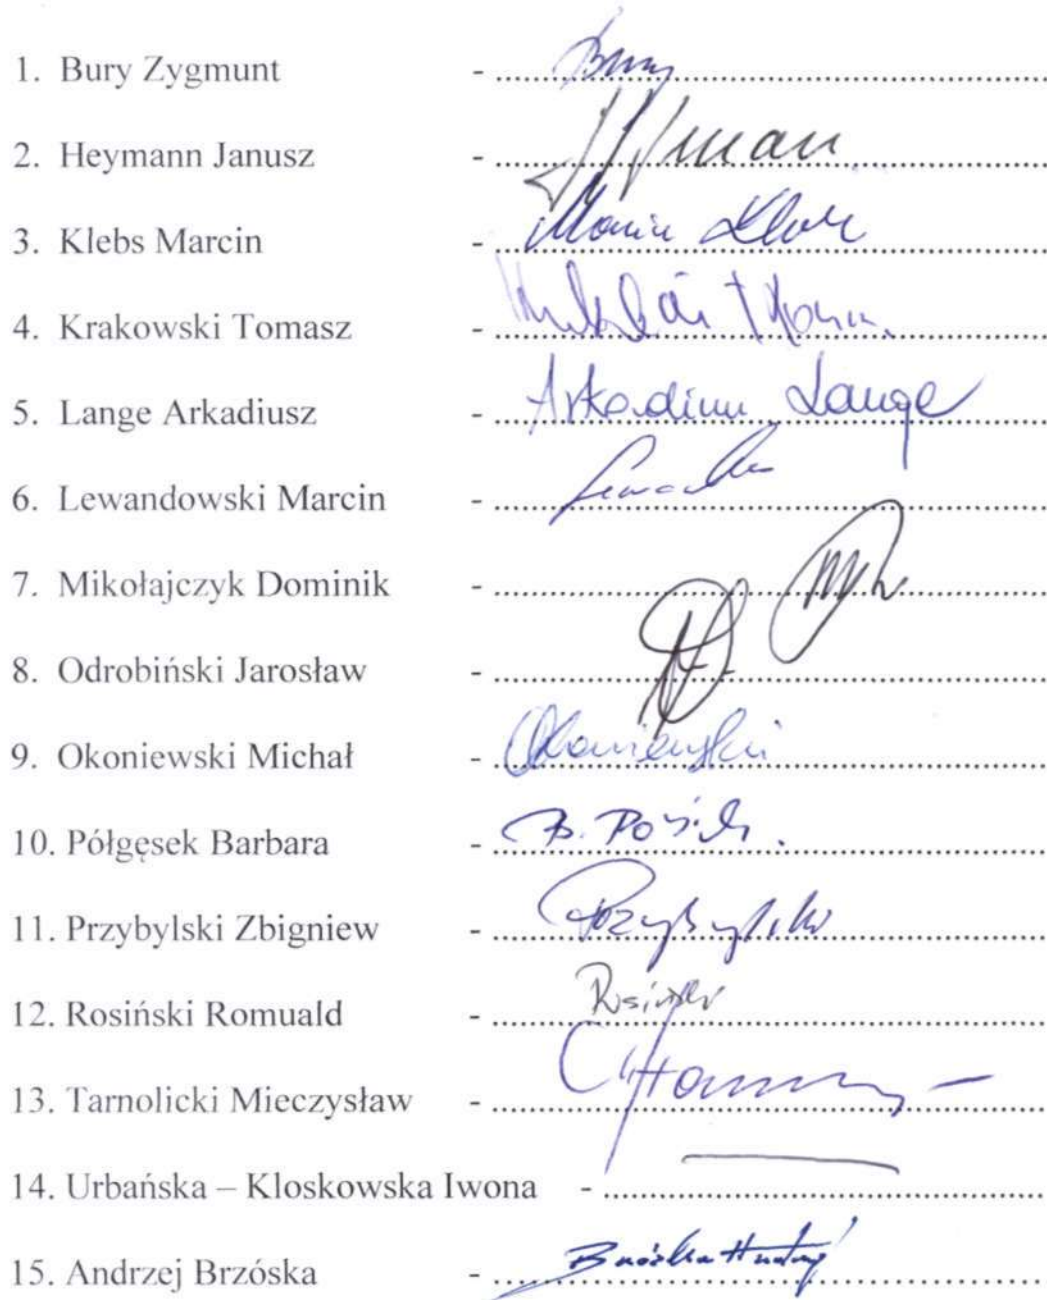 1. Bury Zygmunt - .......... Bury
2. Heymann Janusz - ..........
3. Klebs Marcin - .......... Marcin Klebs
4. Krakowski Tomasz - ..........
5. Lange Arkadiusz - .......... Arkadiusz Lange
6. Lewandowski Marcin - ..........
7. Mikołajczyk Dominik - ..........
8. Odrobiński Jarosław - ..........
9. Okoniewski Michał - .......... Okoniewski
10. Półgęsek Barbara - .......... B.
11. Przybylski Zbigniew - .......... Przybylski
12. Rosiński Romuald - .......... Rosiński
13. Tarnolicki Mieczysław - ..........
14. Urbańska – Kloskowska Iwona - ..........
15. Andrzej Brzóska - .......... Brzóska Andrzej